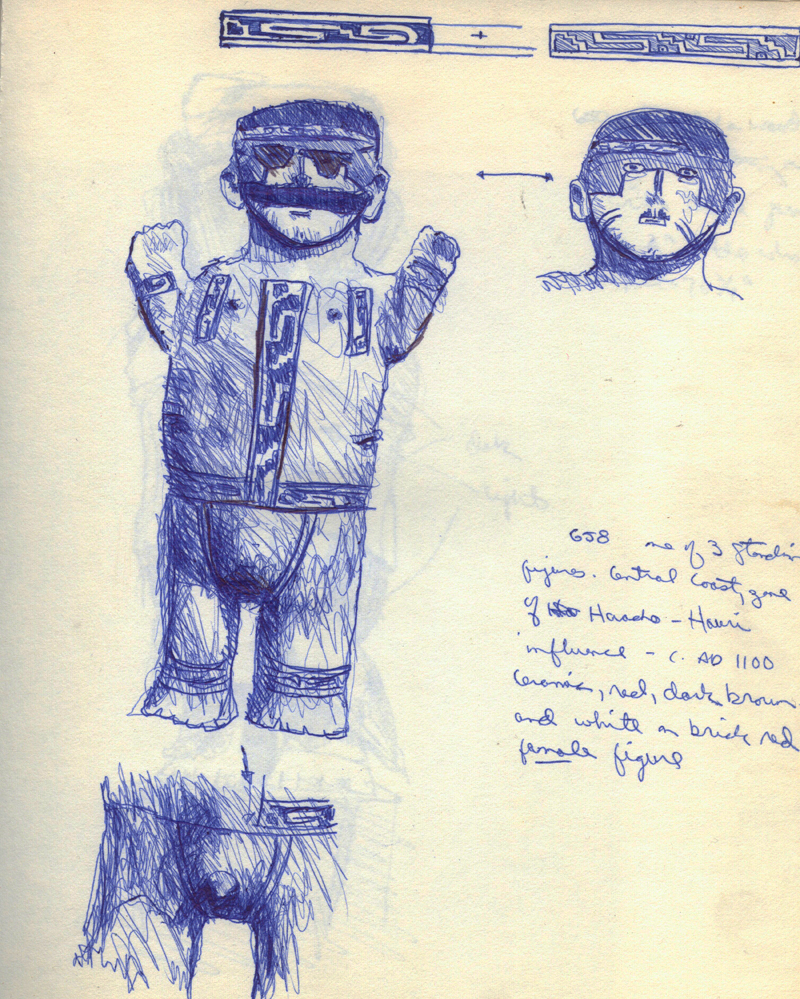 658 one of 3 standin
figures. Central Coast, zone
of Huacho - Huari
influence - c. AD 1100
Ceramic, red, dark brown
and white on brick red
female figure